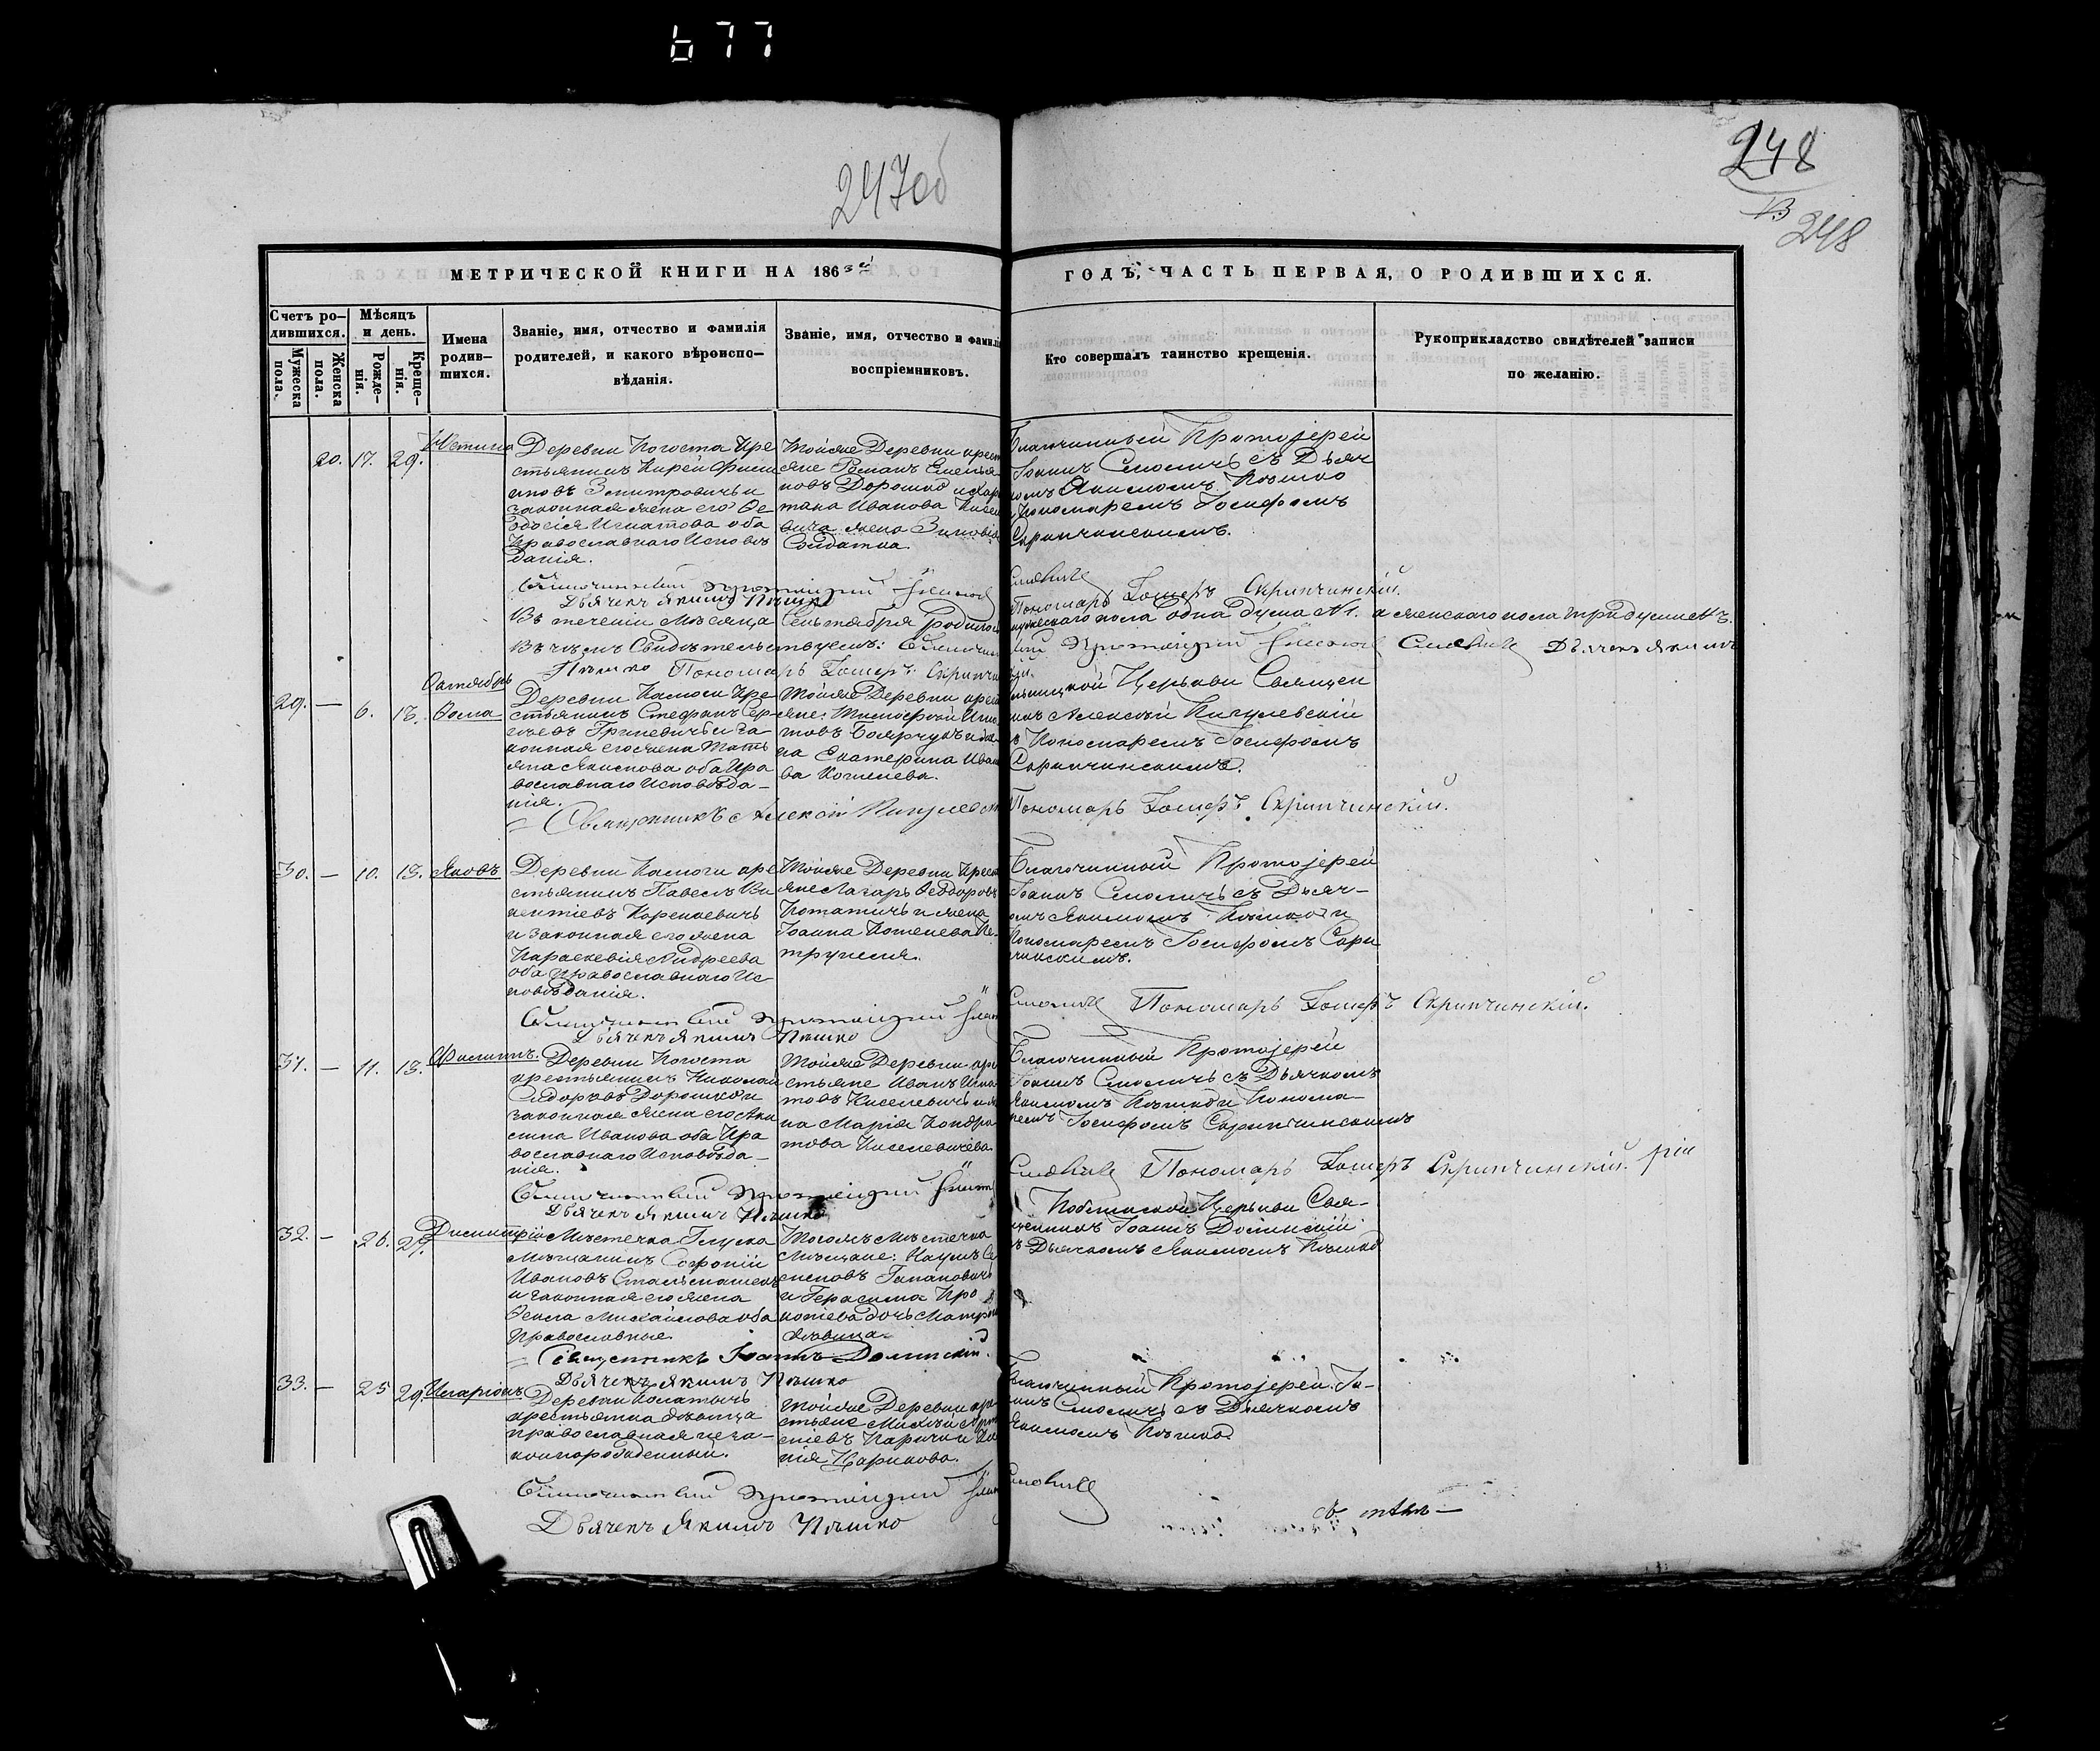 677
247об
248
248
МЕТРИЧЕСКОЙ КНИГИ НА 1863й
ГОДЪ, ЧАСТЬ ПЕРВАЯ, О РОДИВШИХСЯ.
Счетъ ро-
дившихся.
Мужеска
пола.
Женска
пола.
Мѣсяцъ
и день.
Рожде-
нія.
Креще-
нія.
Имена
родив-
шихся.
Званіе, имя, отчество и фамилія
родителей, и какого вѣроиспо-
вѣданія.
Званіе, имя, отчество и фамилі
воспріемниковъ.
Кто совершалъ таинство крещенія.
Рукоприкладство свидѣтелей записи
по желанію.
20. 17. 29.
Деревни Погоста Кре
стьянинъ Кирей Фили
повъ и
законная жена его Ѳе-
одосія Игнатова оба
Православнаго Исповѣ
данія.
Тойже Деревни крест
яне Романъ Емелья
новъ Дорошко и Хари
тона Иванова Кисел
вича жена Зиновія
Солдатка.
Благочинный Протоіерей
Іоаннъ Смоличъ съ Дьяч
комъ Якимомъ Пѣшко
и Пономаремъ Іосифомъ
Скрипчинскимъ.
Благочинный Протоіерей Іоаннъ Смоличъ
Дьячекъ Якимъ Пѣшко
Пономарь Іосифъ Скрипчинскій.
Въ теченіи Мѣсяца Сентября родилось
мужескаго пола одна душа №1. а женскаго пола три души №3.
Въ чемъ Свидѣтельствуемъ: Благочинный Протоіерей Іоаннъ Смоличъ Дьячекъ Якимъ
Пѣшко Пономарь Іосифъ Скрипчинскій.
Октябрь
29. — 6. 13. Ѳома
Деревни Калюги Кре
стьянинъ Стефанъ Сер
гѣевъ Гриневичъ и за
конная его жена Тать
яна Якимова оба Пра
вославнаго Исповѣда-
нія.
Тойже Деревни крест
яне: Тимофей Игна
товъ Боярчукъ и
Екатерина Иван
ва Котелева.
Церкви Священ
никъ Алексѣй Пигулевскій
съ Пономаремъ Іосифомъ
Скрипчинскимъ.
Священникъ Алексѣй Пигулевскій
Пономарь Іосифъ Скрипчинскій.
30. — 10. 13. Яковъ
Деревни Калюги кре
стьянинъ Павелъ Ви
кентіевъ Корсневичъ
и законная его жена
Параскевія Андреева
оба Православнаго Ис-
повѣданія.
Тойже Деревни Крест
яне Лазарь Ѳеодоровъ
Потапичъ и жена
Іоанна Котелева Пе-
трунеля.
Благочинный Протоіерей
Іоаннъ Смоличъ съ Дьяч-
комъ Якимомъ Пѣшко и
Пономаремъ Іосифомъ Скрип
чинскимъ.
Благочинный Протоіерей Іоаннъ Смоличъ
Пономарь Іосифъ Скрипчинскій.
Дьячекъ Якимъ Пѣшко
31. — 11. 13. Филиппъ.
Деревни Погоста
крестьянинъ Николай
Сидоровъ Дорошко и
законная жена его Аки
лина Иванова оба Пра
вославнаго Исповѣда-
нія.
Тойже Деревни кре
стьяне Иванъ Игна
товъ Киселевичъ и
Марія Кондра
това Киселевичева
Благочинный Протоіерей
Іоаннъ Смоличъ съ Дьячкомъ
Якимомъ Пѣшко и Понома-
ремъ Іосифомъ Скрипчинскимъ
Благочинный Протоіерей Іоаннъ Смоличъ
Пономарь Іосифъ Скрипчинскій.
Дьячекъ Якимъ Пѣшко
32. — 26. 27. Димитрій
Мѣстечка Глуска
Мѣщанинъ Софроній
Ивановъ
и законная его жена
Ѳекла Михайлова оба
Православные.
Тогожъ Мѣстечка
Мѣщане: Наумъ Се
меновъ Гапановичъ
и Герасима Про
котіева дочь Матрона
дѣвица.
Церкви Свя-
щенникъ Іоаннъ Долинскій
съ Дьячкомъ Якимомъ Пѣшко
Священникъ Іоаннъ Долинскій.
Дьячекъ Якимъ Пѣшко
33. — 25 29. Иларіонъ
Деревни
крестьянка дѣвица
православная неза-
коннорожденный.
Тойже Деревни кре
стьяне
Благочинный Протоіерей Іо-
аннъ Смоличъ съ Дьячкомъ
Якимомъ Пѣшко
Благочинный Протоіерей Іоаннъ Смоличъ
Дьячекъ Якимъ Пѣшко